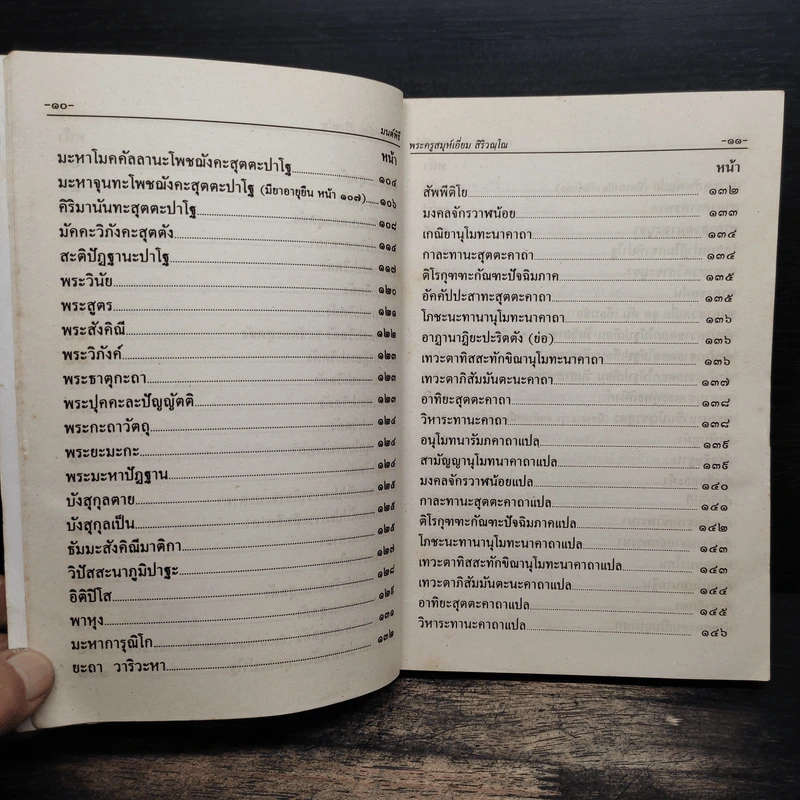 -๑๐-
มนต์พิธี
หน้า
มะหาโมคคัลลานะโพชฌังคะสุตตะปาโฐ ๑๐๔
มะหาจุนทะโพชฌังคะสุตตะปาโฐ (มียาอายุยืน หน้า ๑๐๗) ๑๐๖
คิริมานันทะสุตตะปาโฐ ๑๐๘
มัคคะวิภังคะสุตตัง ๑๑๔
สะติปัฏฐานะปาโฐ ๑๑๗
พระวินัย ๑๒๐
พระสูตร ๑๒๑
พระสังคิณี ๑๒๒
พระวิภังค์ ๑๒๓
พระธาตุกะถา ๑๒๓
พระปุคคะละปัญญัตติ ๑๒๓
พระกะถาวัตถุ ๑๒๔
พระยะมะกะ ๑๒๔
พระมะหาปัฏฐาน ๑๒๔
บังสุกุลตาย ๑๒๕
บังสุกุลเป็น ๑๒๕
ธัมมะสังคิณีมาติกา ๑๒๕
วิปัสสนาภูมิปาฐะ ๑๒๗
อิติปิโส ๑๒๘
พาหุง ๑๒๙
มะหาการุณิโก ๑๓๑
ยะถา วาริวะหา ๑๓๒
พระครูสมุห์เอี่ยม สิริวณฺโณ -๑๑-
หน้า
สัพพีติโย ๑๓๒
มงคลจักรวาฬน้อย ๑๓๓
เกณิยานุโมทะนาคาถา ๑๓๔
กาละทานะสุตตะคาถา ๑๓๔
ติโรกุฑฑะกัณฑะปัจฉิมภาค ๑๓๕
อัคคัปปะสาทะสุตตะคาถา ๑๓๕
โภชะนะทานานุโมทะนาคาถา ๑๓๖
อาฏานาฏิยะปะริตตัง (ย่อ) ๑๓๖
เทวะตาทิสสะทักขิณานุโมทะนาคาถา ๑๓๖
เทวะตาภิสัมมันตะนะคาถา ๑๓๗
อาทิยะสุตตะคาถา ๑๓๘
วิหาระทานะคาถา ๑๓๘
อนุโมทนารัมภคาถาแปล ๑๓๙
สามัญญานุโมทนาคาถาแปล ๑๓๙
มงคลจักรวาฬน้อยแปล ๑๔๐
กาละทานะสุตตะคาถาแปล ๑๔๑
ติโรกุฑฑะกัณฑะปัจฉิมภาคแปล ๑๔๒
โภชะนะทานานุโมทะนาคาถาแปล ๑๔๓
เทวะตาทิสสะทักขิณานุโมทะนาคาถาแปล ๑๔๓
เทวะตาภิสัมมันตะนะคาถาแปล ๑๔๔
อาทิยะสุตตะคาถาแปล ๑๔๕
วิหาระทานะคาถาแปล ๑๔๖